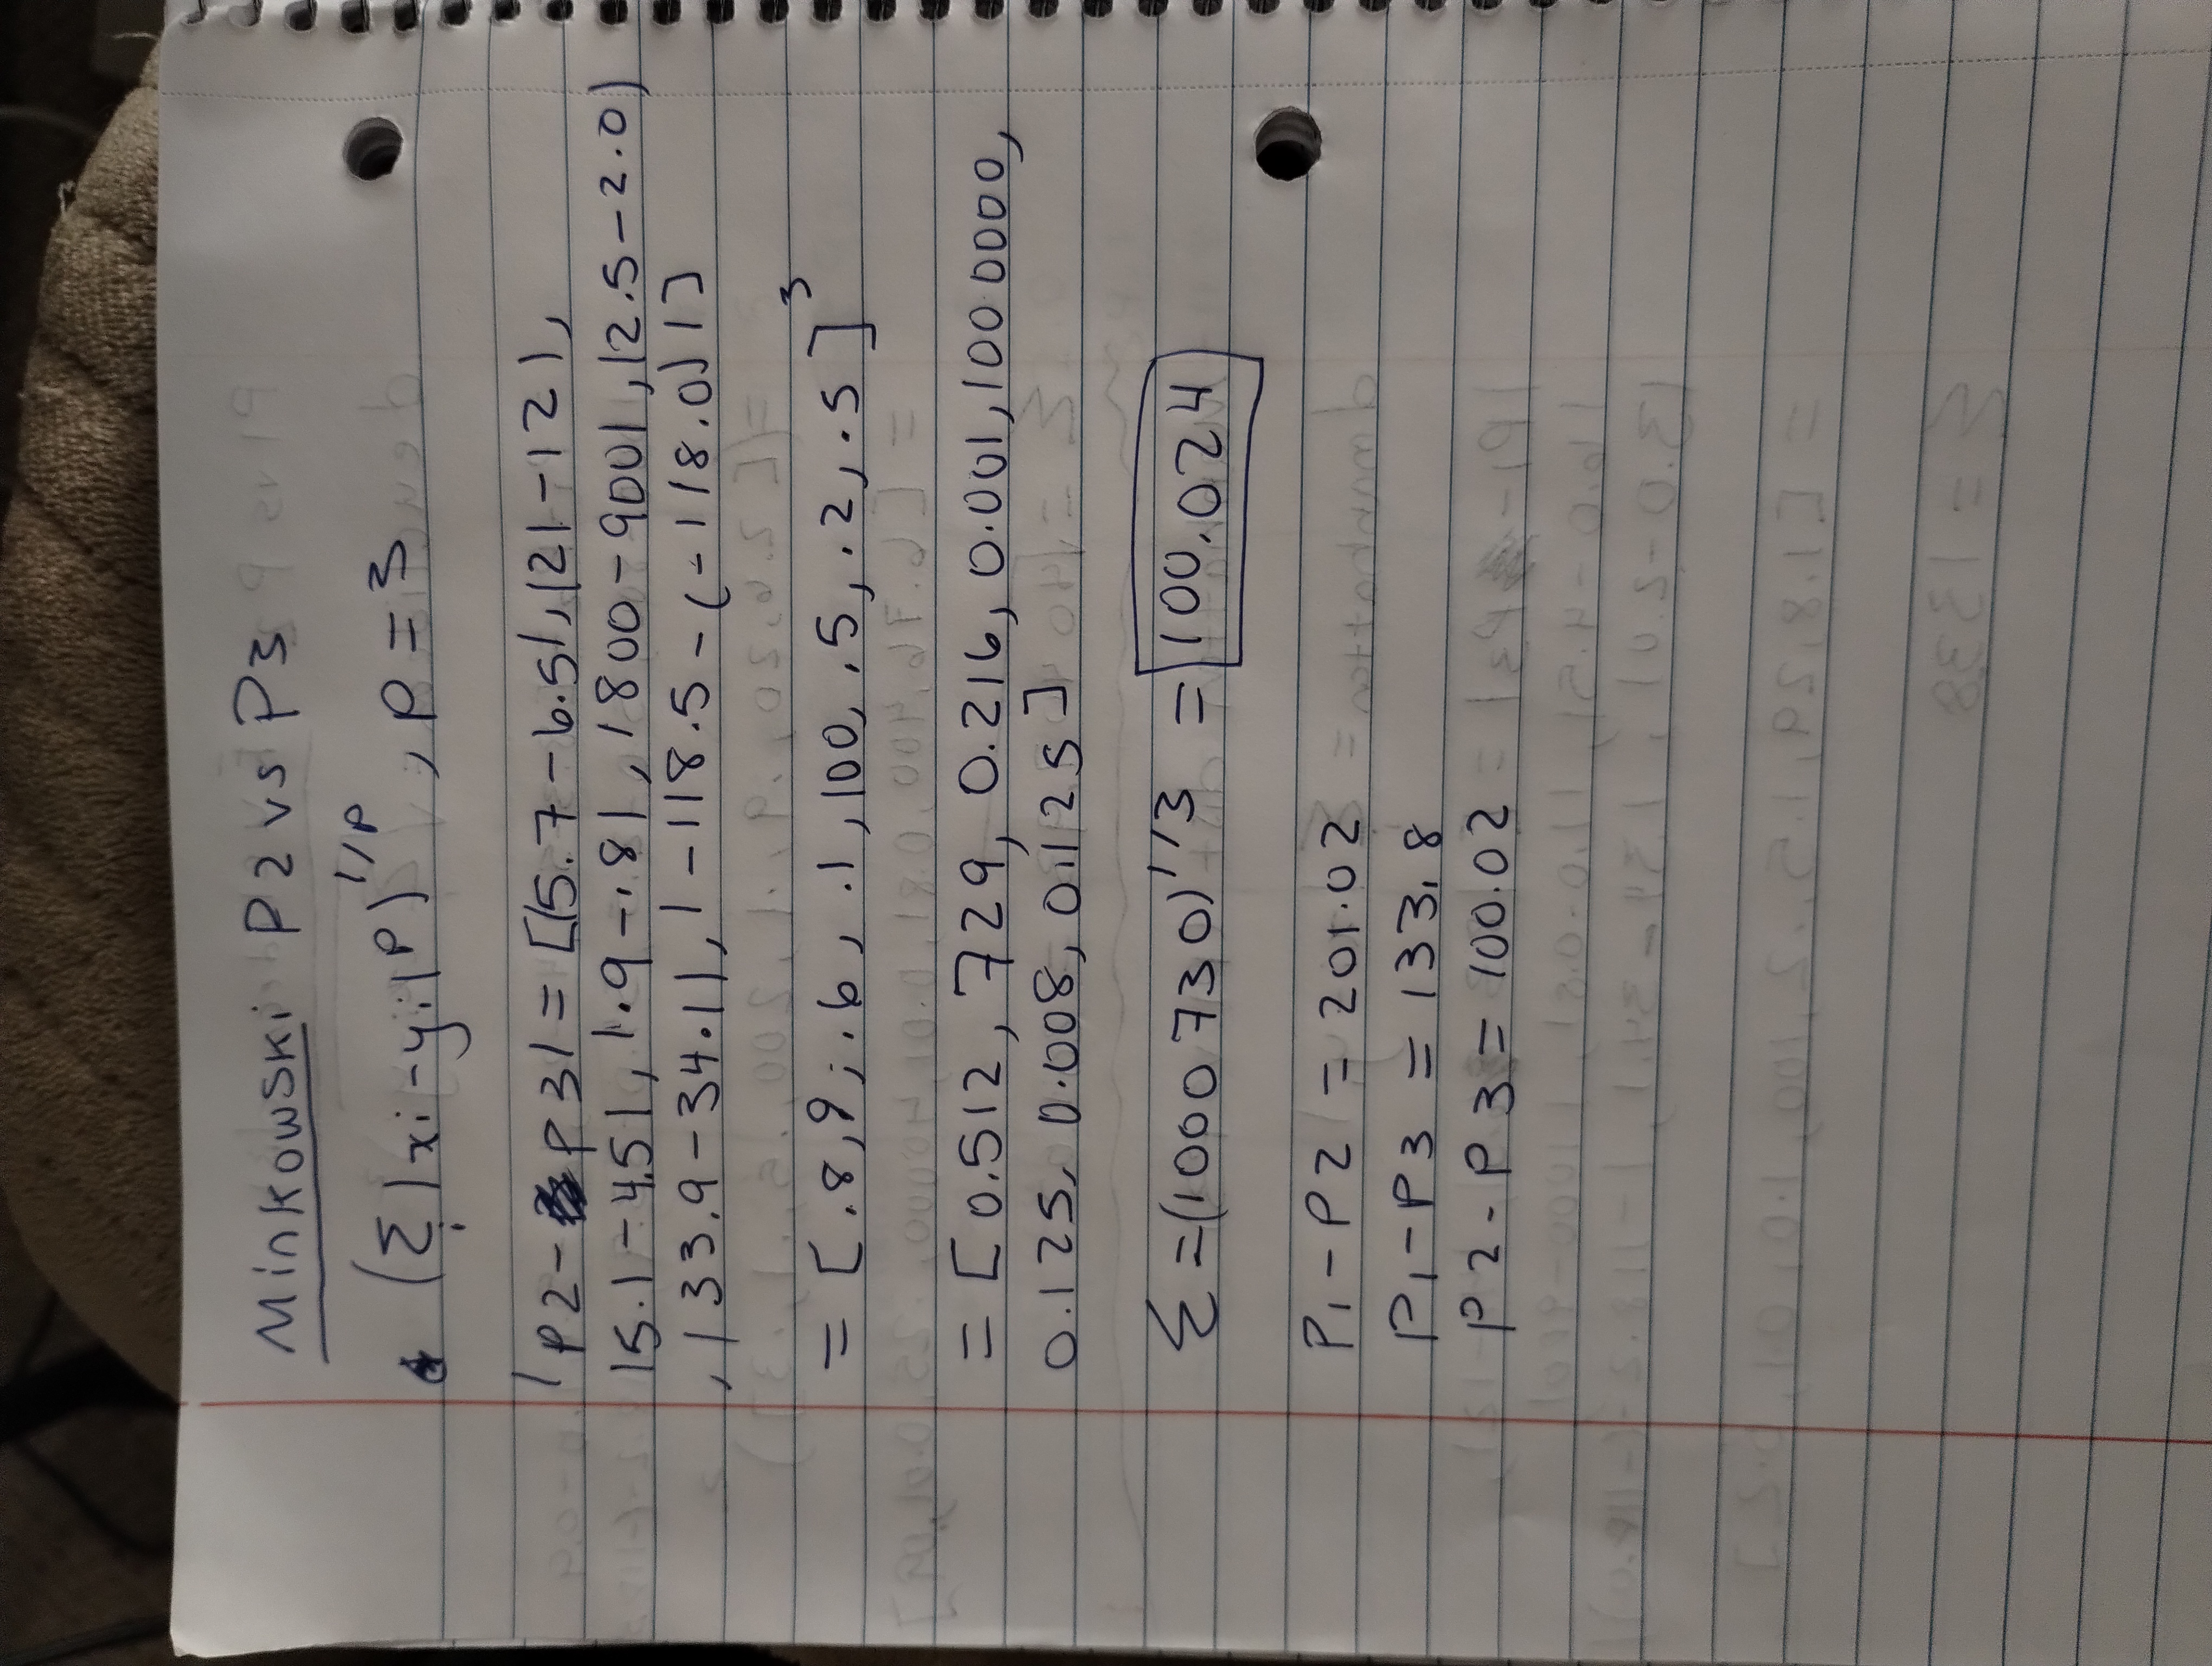 Minkowski P2 vs P3
(Σ|xi-yi|^p)^1/p, p=3
|P2-P3| = [|5.7-6.5|, |21-12|,
|5.1-4.5|, |.9-.8|, |800-900|, |2.5-2.0|
, |33.9-34.1|, |-118.5-(-118.0)|]
= [.8, 9, .6, .1, 100, .5, .2, .5]^3
= [0.512, 729, 0.216, 0.001, 1000000,
0.125, 0.008, 0.125]
Σ = (1000730)^1/3 = 100.024
P1-P2 = 201.02
P1-P3 = 133.8
P2-P3 = 100.02